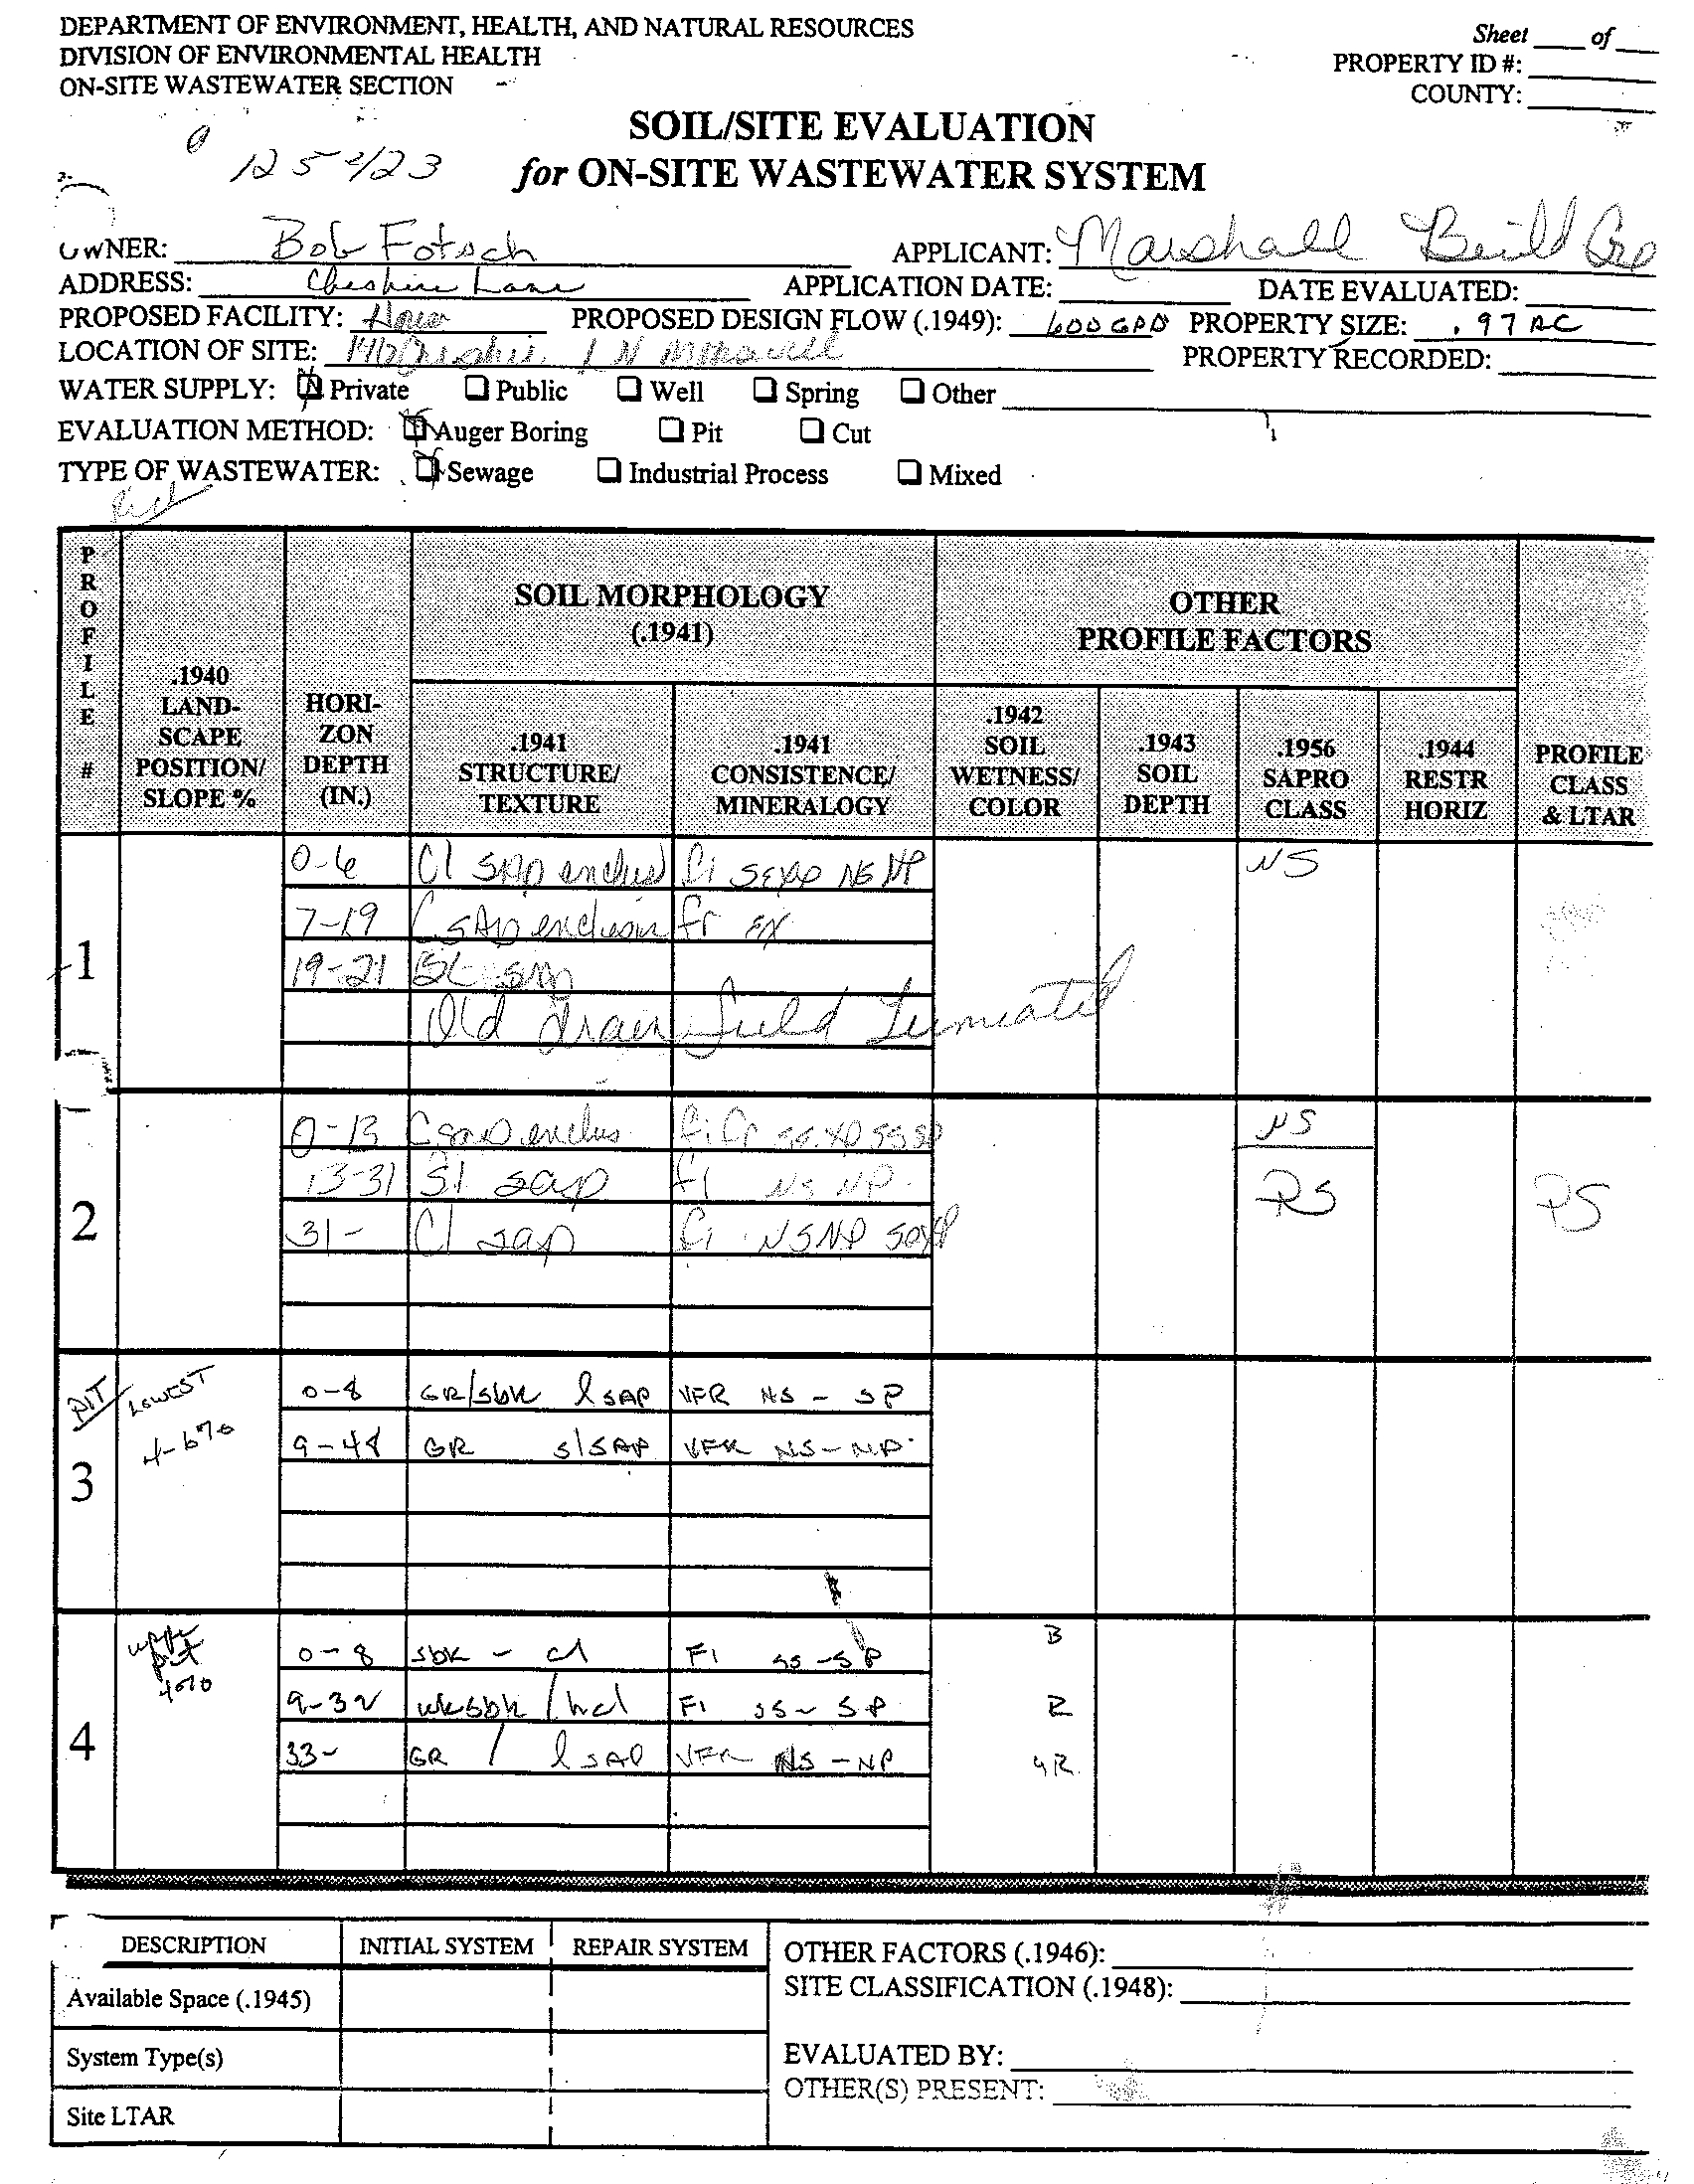 DEPARTMENT OF ENVIRONMENT, HEALTH, AND NATURAL RESOURCES
DIVISION OF ENVIRONMENTAL HEALTH
ON-SITE WASTEWATER SECTION
Sheet ___ of ___
PROPERTY ID #:
COUNTY:
SOIL/SITE EVALUATION
for ON-SITE WASTEWATER SYSTEM
OWNER: Bob Fotsch APPLICANT: Marshall Build
ADDRESS: Cheshire Lane APPLICATION DATE: DATE EVALUATED:
PROPOSED FACILITY: PROPOSED DESIGN FLOW (.1949): 600 GPD PROPERTY SIZE: .97 AC
LOCATION OF SITE: PROPERTY RECORDED:
WATER SUPPLY: Private Public Well Spring Other
EVALUATION METHOD: Auger Boring Pit Cut
TYPE OF WASTEWATER: Sewage Industrial Process Mixed
PROFILE #
.1940 LAND-SCAPE POSITION/ SLOPE %
HORI-ZON DEPTH (IN.)
SOIL MORPHOLOGY (.1941)
.1941 STRUCTURE/ TEXTURE
.1941 CONSISTENCE/ MINERALOGY
OTHER PROFILE FACTORS
.1942 SOIL WETNESS/ COLOR
.1943 SOIL DEPTH
.1956 SAPRO CLASS
.1944 RESTR HORIZ
PROFILE CLASS & LTAR
1
0-6 Cl SAP fi SEXP NS NP NS
7-19 C SAP fr EX
19-21
Old drain field
2
0-13 C sap enclus. fi fr SS SP NS
13-31 Sl sap fi NS NP PS PS
31- Cl sap fi NSNP SEXP
PIT 3
LOWEST
+/- 6%
0-8 GR/sbk l SAP VFR NS - SP
9-48 GR sl SAP VFR NS-NP
4
upper pit
0-8 sbk - cl FI SS-SP B
9-32 wksbk / FI SS-SP R
33- GR / l SAP VFR NS-NP YR
DESCRIPTION INITIAL SYSTEM REPAIR SYSTEM
Available Space (.1945)
System Type(s)
Site LTAR
OTHER FACTORS (.1946):
SITE CLASSIFICATION (.1948):
EVALUATED BY:
OTHER(S) PRESENT: